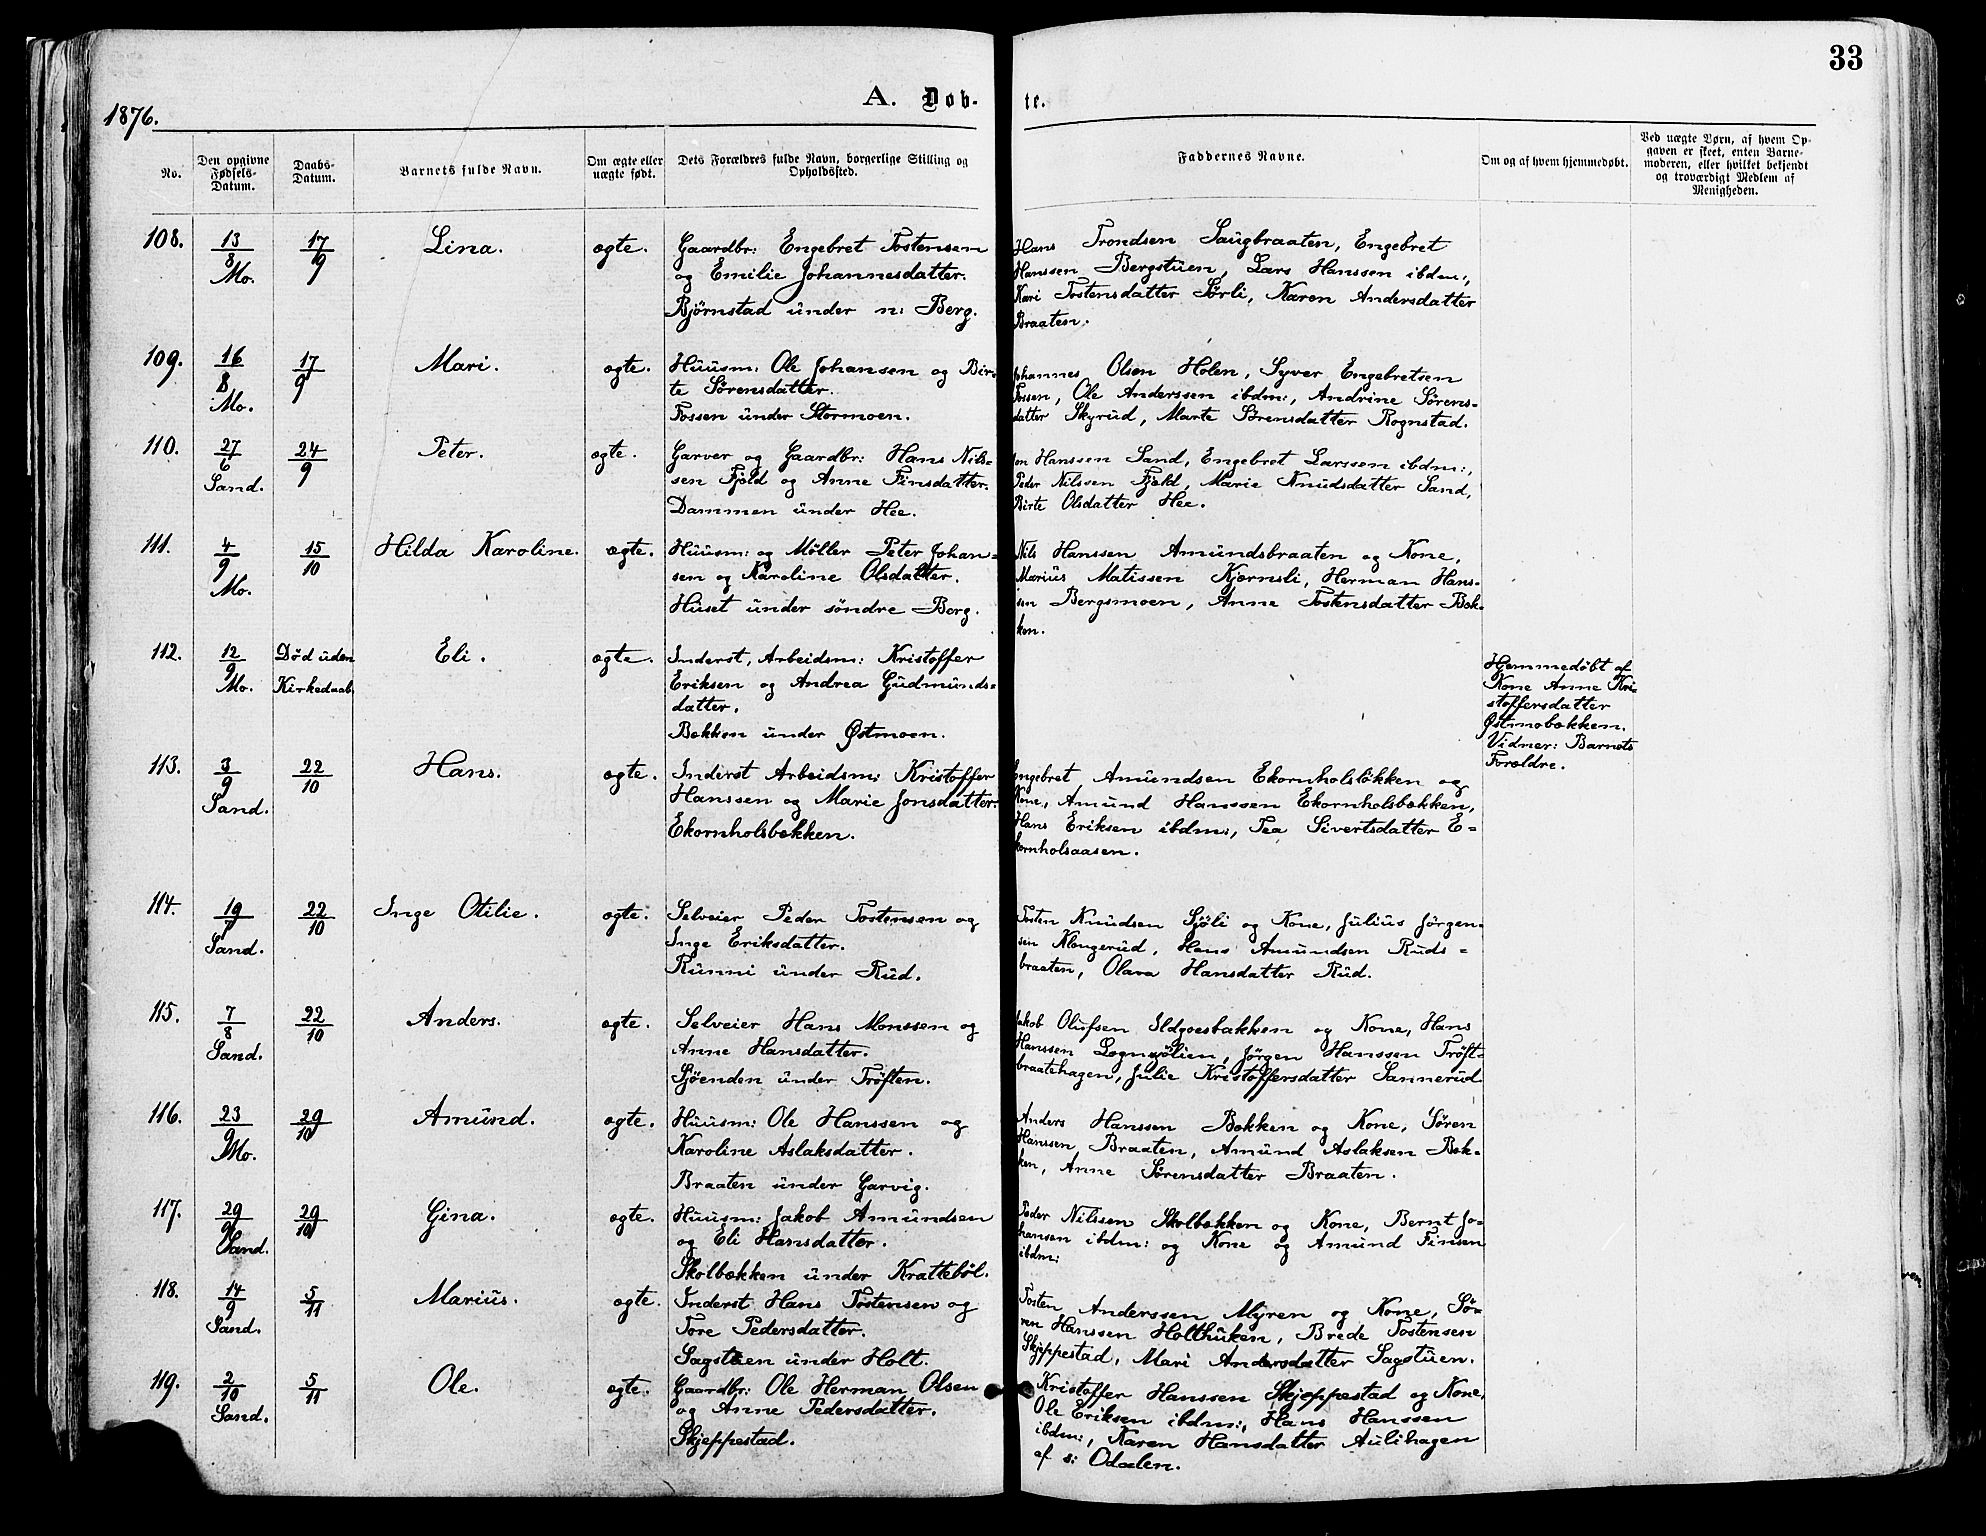 33
1876.
A. Døb-
te.
No.
Den opgivne
Fødsels-
Datum.
Daabs-
Datum.
Barnets fulde Navn.
Om ægte eller
uægte født.
Dets Forældres fulde Navn, borgerlige Stilling og
Opholdssted.
Faddernes Navne.
Om og af hvem hjemmedøbt.
Ved uægte Børn, af hvem Op-
gaven er skeet, enten Barne-
moderen, eller hvilket bekjendt
og troværdigt Medlem af
Menigheden.
108. 13/8 Mo. 17/9 Lina. ægte.
Gaardbr: Engebret Tostensen
og Emilie Johannesdatter.
Bjørnstad under n: Berg.
Hans Trondsen Saugbraaten, Engebret
Hanssen Bergstuen, Lars Hanssen ibdm:,
Kari Tostensdatter Sørli, Karen Andersdatter
Braaten.
109. 16/8 Mo. 17/9 Mari. ægte.
Huusm: Ole Johansen og Bir-
te Sørensdatter.
Fossen under Stormoen.
Johannes Olsen Holen, Syver Engebretsen
Fossen, Ole Anderssen ibdm:, Andrine Sørens-
datter Skyrud, Marte Sørensdatter Rognstad.
110. 27/6 Sand. 24/9 Peter. ægte.
Garver og Gaardbr: Hans Nils-
sen Fjeld og Anne Finsdatter.
Dammen under Hee.
Jon Hanssen Sand, Engebret Larssen ibdm:,
Peder Nilssen Fjeld, Marie Knudsdatter Sand,
Birte Olsdatter Hee.
111. 4/9 Mo. 15/10 Hilda Karoline. ægte.
Huusm: og Møller Peter Johan-
sen og Karoline Olsdatter.
Huset under søndre Berg.
Nils Hanssen Amundsbraaten og Kone,
Marius Matissen Kjærnsli, Herman Hans-
sen Bergsmoen, Anne Tostensdatter Bæk-
ken.
112. 12/9 Mo. Død uden
Kirkedaab. Eli. ægte.
Inderst, Arbeidsm: Kristoffer
Eriksen og Andrea Gudmunds-
datter.
Bækken under Østmoen.
Hjemmedøbt af
Kone Anne Kri-
stoffersdatter
Østmobækken.
Vidner: Barnets
Forældre.
113. 3/9 Sand. 22/10 Hans. ægte.
Inderst Arbeidsm: Kristoffer
Hanssen og Marie Jonsdatter.
Ekornholsbækken.
Engebret Amundsen Ekornholsløkken og
Kone, Amund Hanssen Ekornholsbækken,
Hans Eriksen ibdm:, Tea Sivertsdatter E-
kornholsaasen.
114. 19/7 Sand. 22/10 Inge Otilie. ægte.
Selveier Peder Tostensen og
Inge Eriksdatter.
Runni under Rud.
Tosten Knudsen Sjøli og Kone, Julius Jørgen-
sen Klongerud, Hans Amundsen Ruds-
braaten, Olava Hansdatter Rud.
115. 7/8 Sand. 22/10 Anders. ægte.
Selveier Hans Monssen og
Anne Hansdatter.
Sjøenden under Trøften.
Jakob Olufsen Ildgoesbakken og Kone, Hans
Hanssen Lognvølien, Jørgen Hanssen Trøft-
braatehagen, Julie Kristoffersdatter Sannerud.
116. 23/9 Mo. 29/10 Amund. ægte.
Huusm: Ole Hanssen og
Karoline Aslaksdatter.
Braaten under Garvig.
Anders Hanssen Bækken og Kone, Søren
Hanssen Braaten, Amund Aslaksen Bæk-
ken, Anne Sørensdatter Braaten.
117. 29/9 Sand. 29/10 Gina. ægte.
Huusm: Jakob Amundsen
og Eli Hansdatter.
Skolbækken under Krattebøl.
Peder Nilssen Skolbækken og Kone, Bernt Jo-
hansen ibdm: og Kone og Amund Finsen
ibdm:
118. 14/9 Sand. 5/11 Marius. ægte.
Inderst Hans Tostensen og
Tore Pedersdatter.
Sagstuen under Holt.
Tosten Anderssen Myren og Kone, Sø-
ren Hanssen Holthuken, Brede Tostensen
Skjeppestad, Mari Andersdatter Sagstuen.
119. 2/10 Sand. 5/11 Ole. ægte.
Gaardbr: Ole Herman Olsen
og Anne Pedersdatter.
Skjeppestad.
Kristoffer Hanssen Skjeppestad og Kone,
Ole Eriksen ibdm:, Hans Hanssen
ibdm:, Karen Hansdatter Aulihagen
af s: Odalen.